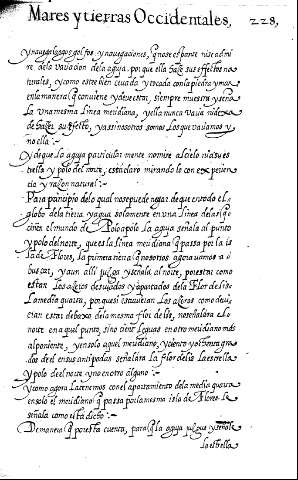 Mares y tierras Occidentales, 228,
y nauegar largos golfos, y nauegaciones, q̃ no se espante ni se admi
re de la variacion de la aguja. porque ella haze sus effectos na
turales, y como este bien ceuada y tocada con la piedra yman
en la manera q̃ conuiene y deue estar, siempre muestra y seña
la vna mesma linea meridiana, y ella nunca varia ni dexa
de hazer su effecto, y assi nosotros somos los que variamos y
no ella:~
y de que la aguja particularmente nomire al cielo ni a su es
trella y polo del norte, esta claro mirando lo con experien
cia y razon natural:~
Para principio de lo qual no se puede negar de que en todo el
globo de la tierra y agua solamente en vna linea de las q̃
ciñe el mundo de Polo a polo la aguja señala al punto
y polo del norte, que es la linea meridiana q̃ passa por la is
la de Flores, la primera tierra q̃ nosotros agora vamos a
buscar, y aun alli juzga y señala al norte, por estar como
estan los azeros desuiados y apartados de la Flor de lis
la media quarta, porque si estuuieran los azeros como deui
an estar debaxo de la mesma flor de lis, no señalara el
norte en aquel punto, sino cient leguas en otro meridiano mas
al poniente, y en solo aquel meridiano, y ciento y ochenta gra
dos de el en sus antipodas señalara la flor de lis la estrella
y polo del norte y no en otro alguno:
y como agora la tenemos con el apartamiento de la media quarta
en solo el meridiano q̃ passa por la mesma isla de Flores la
señala como esta dicho:~
De manera q̃ por esta cuenta, para q̃ la aguja juzgue y señale
la estrella